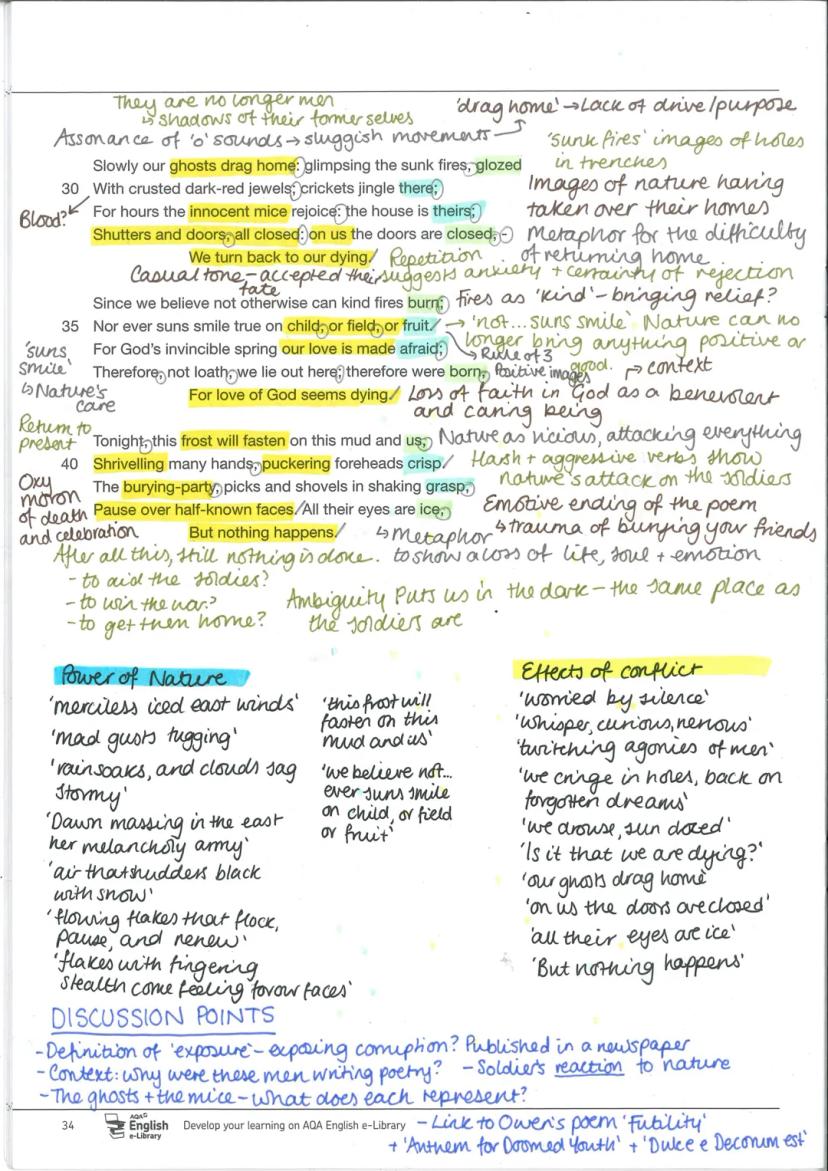 They are no longer men
↳ shadows of their former selves
'drag home' → Lack of drive/purpose
Assonance of 'o' sounds → sluggish movements
'sunk fires' images of holes
in trenches
Slowly our ghosts drag home: glimpsing the sunk fires, glozed
30 With crusted dark-red jewels; crickets jingle there;
Blood?
Images of nature having
taken over their homes
For hours the innocent mice rejoice: the house is theirs;
Shutters and doors, all closed: on us the doors are closed,-
Metaphor for the difficulty
of returning home
We turn back to our dying.
Repetition
suggests anxiety + certainty of rejection
Casual tone - accepted their
fate
Since we believe not otherwise can kind fires burn;
Fires as 'kind' - bringing relief?
35 Nor ever suns smile true on child, or field, or fruit.
→ 'not...suns smile' Nature can no
longer bring anything positive or
good.
↳ Rule of 3
Positive images
'suns
smile'
↳ Nature's
care
For God's invincible spring our love is made afraid;
Therefore, not loath, we lie out here; therefore were born,
context
For love of God seems dying.
Loss of faith in God as a benevolent
and caring being
Return to
present
Tonight, this frost will fasten on this mud and us,
Nature as vicious, attacking everything
40 Shrivelling many hands, puckering foreheads crisp.
Harsh + aggressive verbs show
nature's attack on the soldiers
Oxy
moron
of death
and celebration
The burying-party, picks and shovels in shaking grasp,
Pause over half-known faces. All their eyes are ice,
Emotive ending of the poem
↳ trauma of burying your friends
But nothing happens.
↳ Metaphor
to show a loss of life, soul + emotion
After all this, still nothing is done.
- to aid the soldiers?
- to win the war?
- to get them home?
Ambiguity Puts us in the dark - the same place as
the soldiers are
Power of Nature
'merciless iced east winds'
'mad gusts tugging'
'rain soaks, and clouds sag
stormy'
'Dawn massing in the east
her melancholy army'
'air that shudders black
with snow'
'flowing flakes that flock,
pause, and renew'
'flakes with fingering
stealth come feeling for our faces'
'this frost will
fasten on this
mud and us'
'we believe not...
ever suns smile
on child, or field
or fruit'
Effects of conflict
'worried by silence'
'whisper, curious, nervous'
'twitching agonies of men'
'we cringe in holes, back on
forgotten dreams'
'we drowse, sun dozed'
'Is it that we are dying?'
'our ghosts drag home'
'on us the doors are closed'
'all their eyes are ice'
'But nothing happens'
DISCUSSION POINTS
- Definition of 'exposure' - exposing corruption? Published in a newspaper
- Context: why were these men writing poetry?
- Soldier's reaction to nature
- The ghosts + the mice - what does each represent?
- Link to Owen's poem 'Futility'
+ 'Anthem for Doomed Youth' + 'Dulce e Decorum est'
34
AQA
English
e-Library
Develop your learning on AQA English e-Library